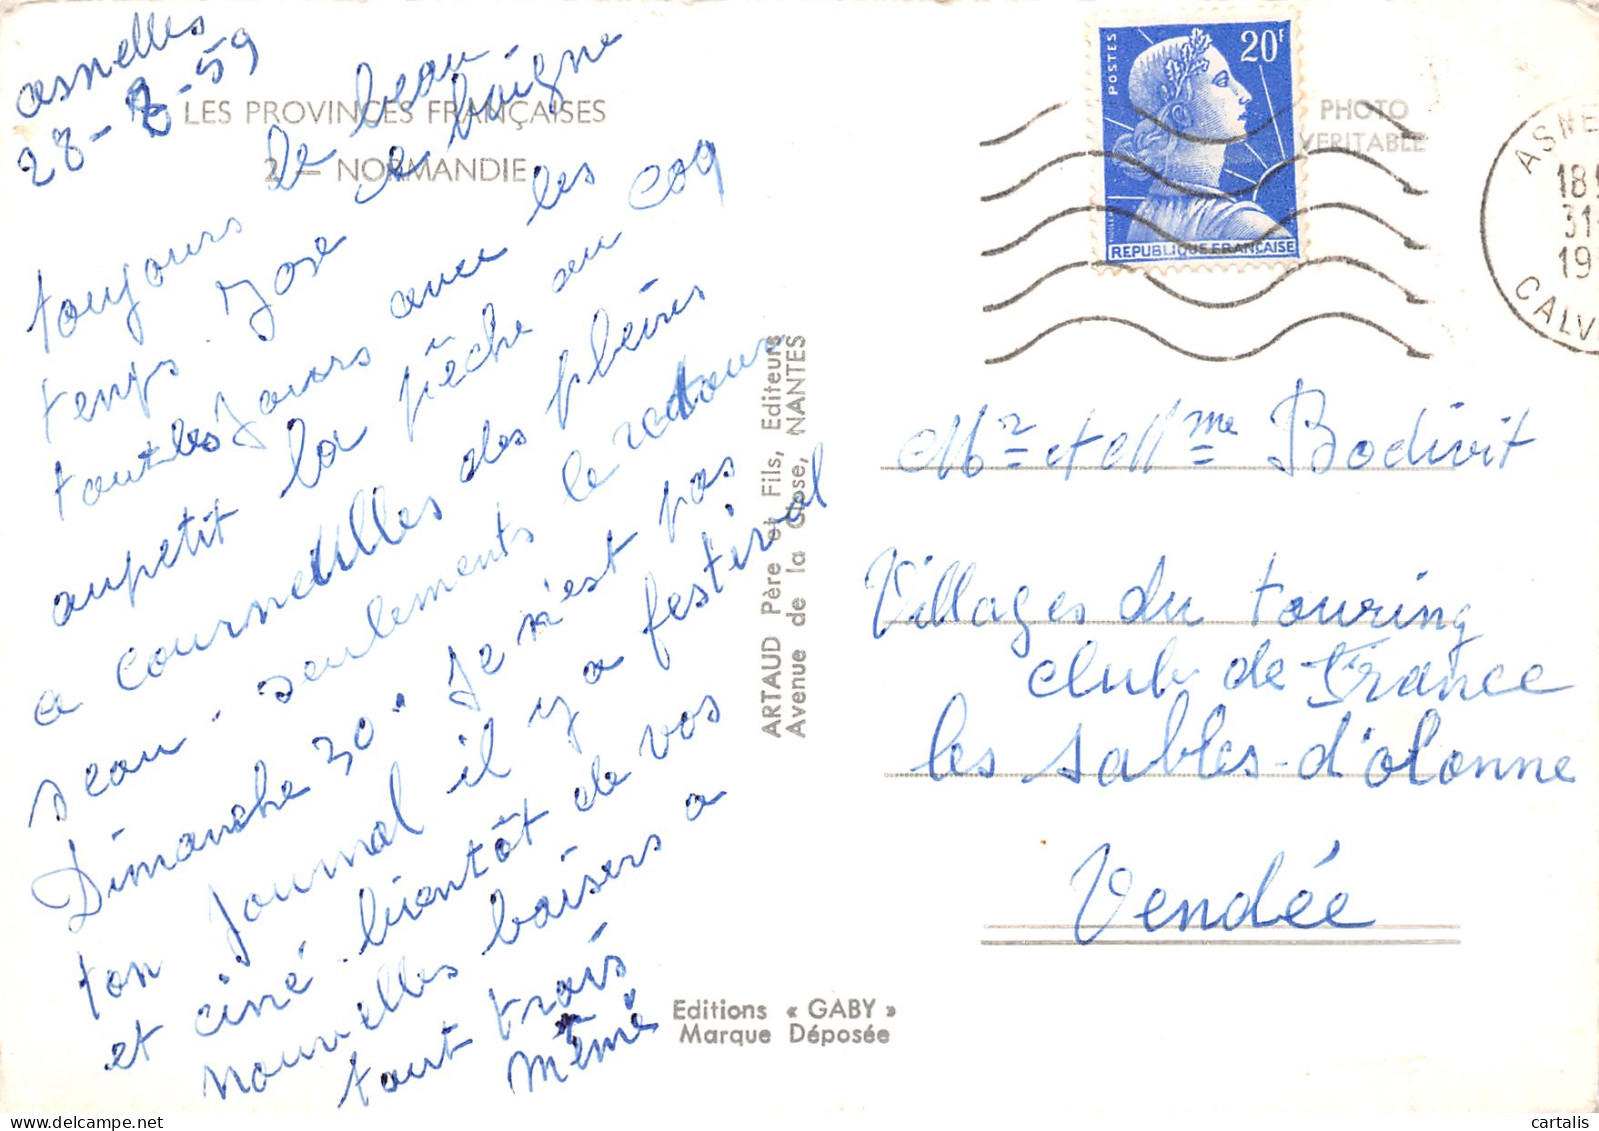 asnelles
28-8-59
LES PROVINCES FRANÇAISES
2 — NORMANDIE
toujours le beau
temps Jose ce baigne
tout les jours avec les
aupetit la pêche au coq
a courneulles des pleins
seau. seulements le retour
Dimanche 30. Je n'est pas
ton journal il y a festival
et ciné bientôt de vos
nouvelles baisers a
tout trois
mémé
ARTAUD Père et Fils, Editeurs
Avenue de la Close, NANTES
Editions « GABY »
Marque Déposée
POSTES
20F
REPUBLIQUE FRANÇAISE
PHOTO
VERITABLE
ASNE
18
31
19
CALV
Mr et Mme Bodivit
Villages du touring
club de France
les sables-d'olonne
Vendée
www.cartalis.com